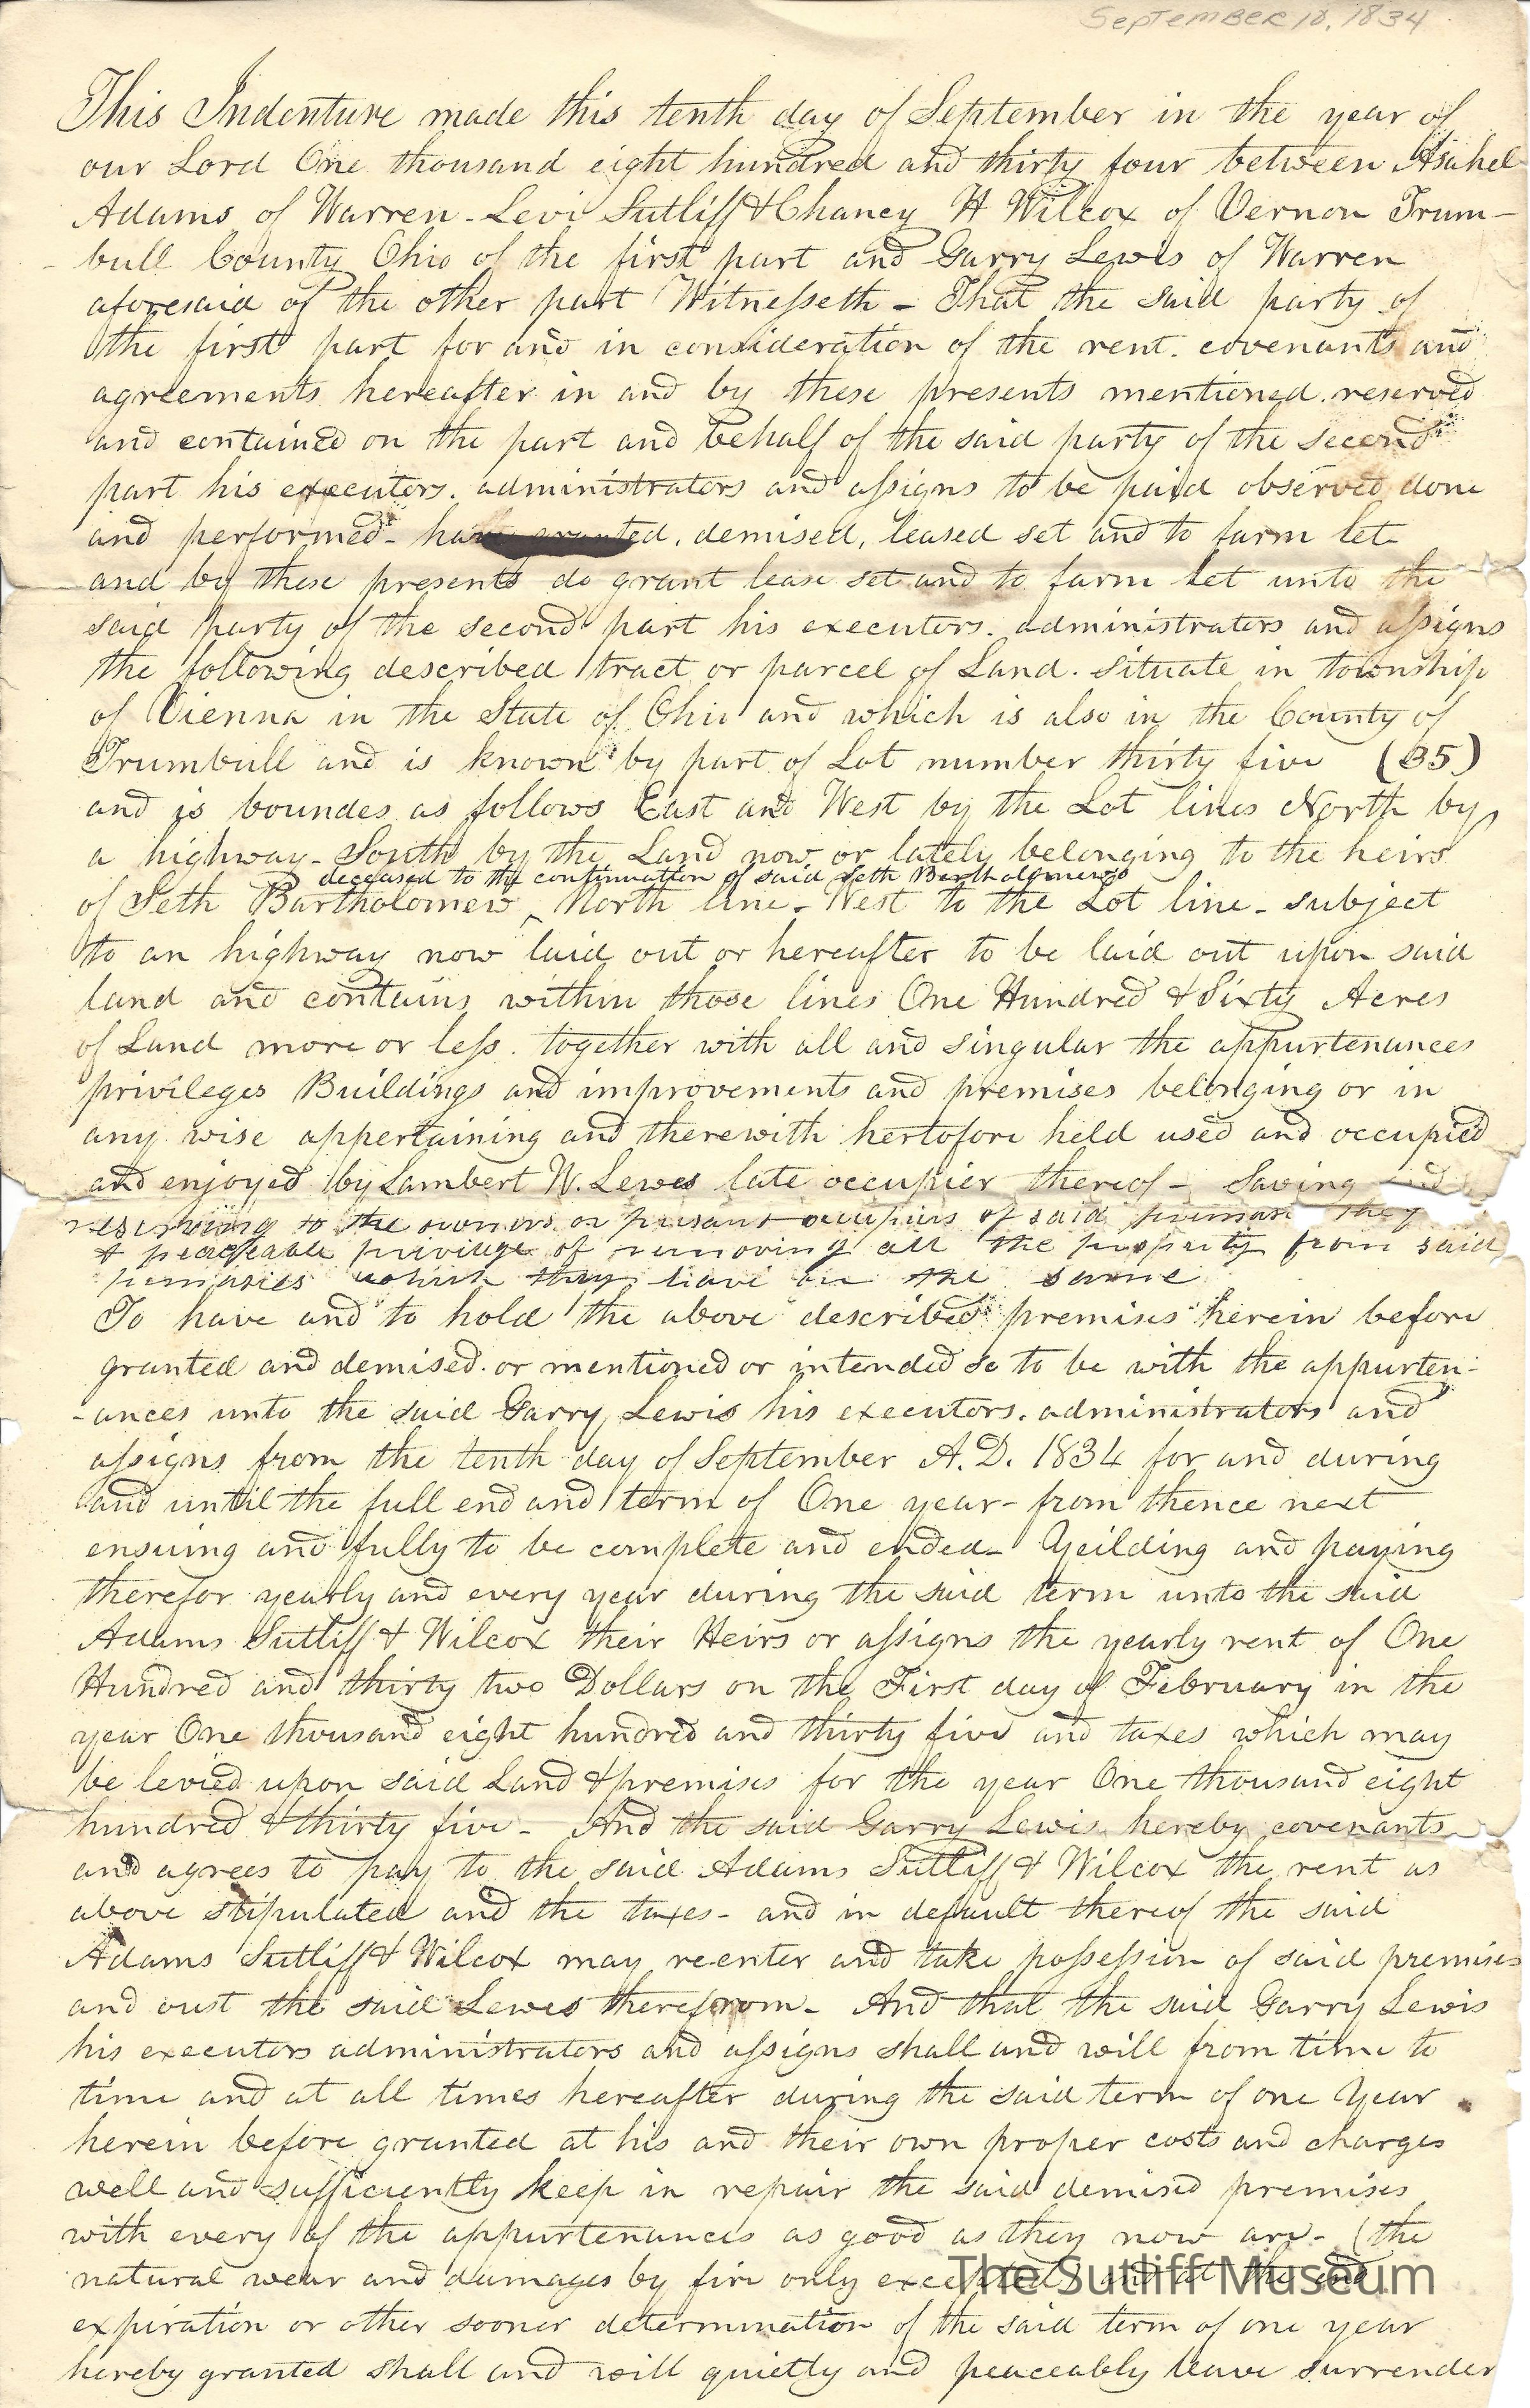 September 10, 1834
This Indenture made this tenth day of September in the year of
our Lord One thousand eight hundred and thirty four between Asahel
Adams of Warren - Levi Sutliff & Chancy H Wilcox of Vernon Trum-
bull County Ohio of the first part and Garry Lewis of Warren
aforesaid of the other part Witnesseth - That the said party of
the first part for and in consideration of the rent. covenants and
agreements hereafter in and by these presents mentioned. reserved
and contained on the part and behalf of the said party of the second
part his executors. administrators and assigns to be paid observed done
and performed - have granted, demised, leased set and to farm let
and by these presents do grant lease set and to farm let unto the
said party of the second part his executors. administrators and assigns
the following described tract or parcel of Land. situate in township
of Vienna in the State of Ohio and which is also in the County of
Trumbull and is known by part of Lot number thirty five (35)
and is boundes as follows East and West by the Lot lines North by
a highway - South by the Land now or lately belonging to the heirs
deceased to the continuation of said Seth Bartholomews
of Seth Bartholomew ^ North line - West to the Lot line - subject
to an highway now laid out or hereafter to be laid out upon said
land and contains within those lines One Hundred & Sixty Acres
of Land more or less. together with all and singular the appurtenances
privileges Buildings and improvements and premises belonging or in
any wise appertaining and therewith hertofore held used and occupied
and enjoyed by Lambert W. Lewes late occupier thereof - Saving and
reserving to the owners or present occupiers of said premises they
& peaceable privilege of removing all the property from said
premises which they have on the same
To have and to hold the above described premises herein before
granted and demised. or mentioned or intended so to be with the appurten-
-ances unto the said Garry Lewis his executors. administrators and
assigns from the tenth day of September A.D. 1834 for and during
and until the full end and term of One year - from thence next
ensuing and fully to be complete and ended - Yeilding and paying
therefor yearly and every year during the said term unto the said
Adams Sutliff & Wilcox their Heirs or assigns the yearly rent of One
Hundred and thirty two Dollars on the First day of February in the
year One thousand eight hundred and thirty five and taxes which may
be levied upon said Land & premises for the year One thousand eight
hundred & thirty five - And the said Garry Lewis hereby covenants
and agrees to pay to the said Adams Sutliff & Wilcox the rent as
above stipulated and the taxes - and in default thereof the said
Adams Sutliff & Wilcox may re-enter and take possession of said premises
and oust the said Lewes therefrom - And that the said Garry Lewis
his executors administrators and assigns shall and will from time to
time and at all times hereafter during the said term of one Year
herein before granted at his and their own proper costs and charges
well and sufficiently keep in repair the said demised premises
with every of the appurtenances as good as they now are - (the
natural wear and damages by fire only excepted) and at the end
The Sutliff Museum
expiration or other sooner determination of the said term of one year
hereby granted shall and will quietly and peaceably leave surrender